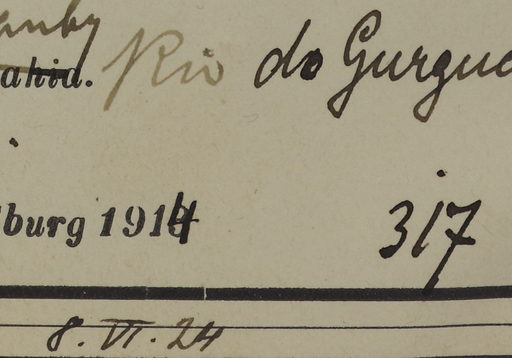 ahia. Rio do Gurgue
burg 1914 317
8. VI. 24